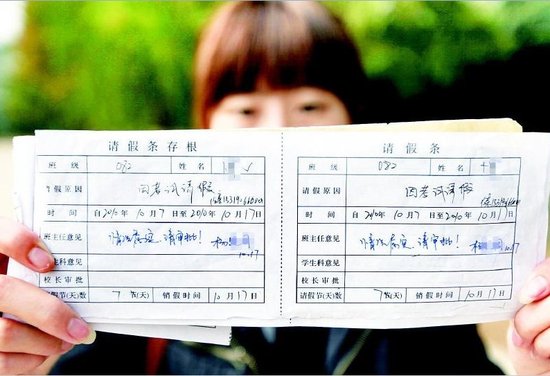 请假条存根
班级 082 姓名
请假原因 因考试请假
时间 自2010年10月7日至2010年10月17日
班主任意见 情况属实,请审批!
10.17
学生科意见
校长审批
请假节(天)数 7节(天) 销假时间 10月17日
请假条
班级 082 姓名
请假原因 因考试请假
时间 自2010年10月7日至2010年10月17日
班主任意见 情况属实,请审批!
10.17
学生科意见
校长审批
请假节(天)数 7节(天) 销假时间 10月17日